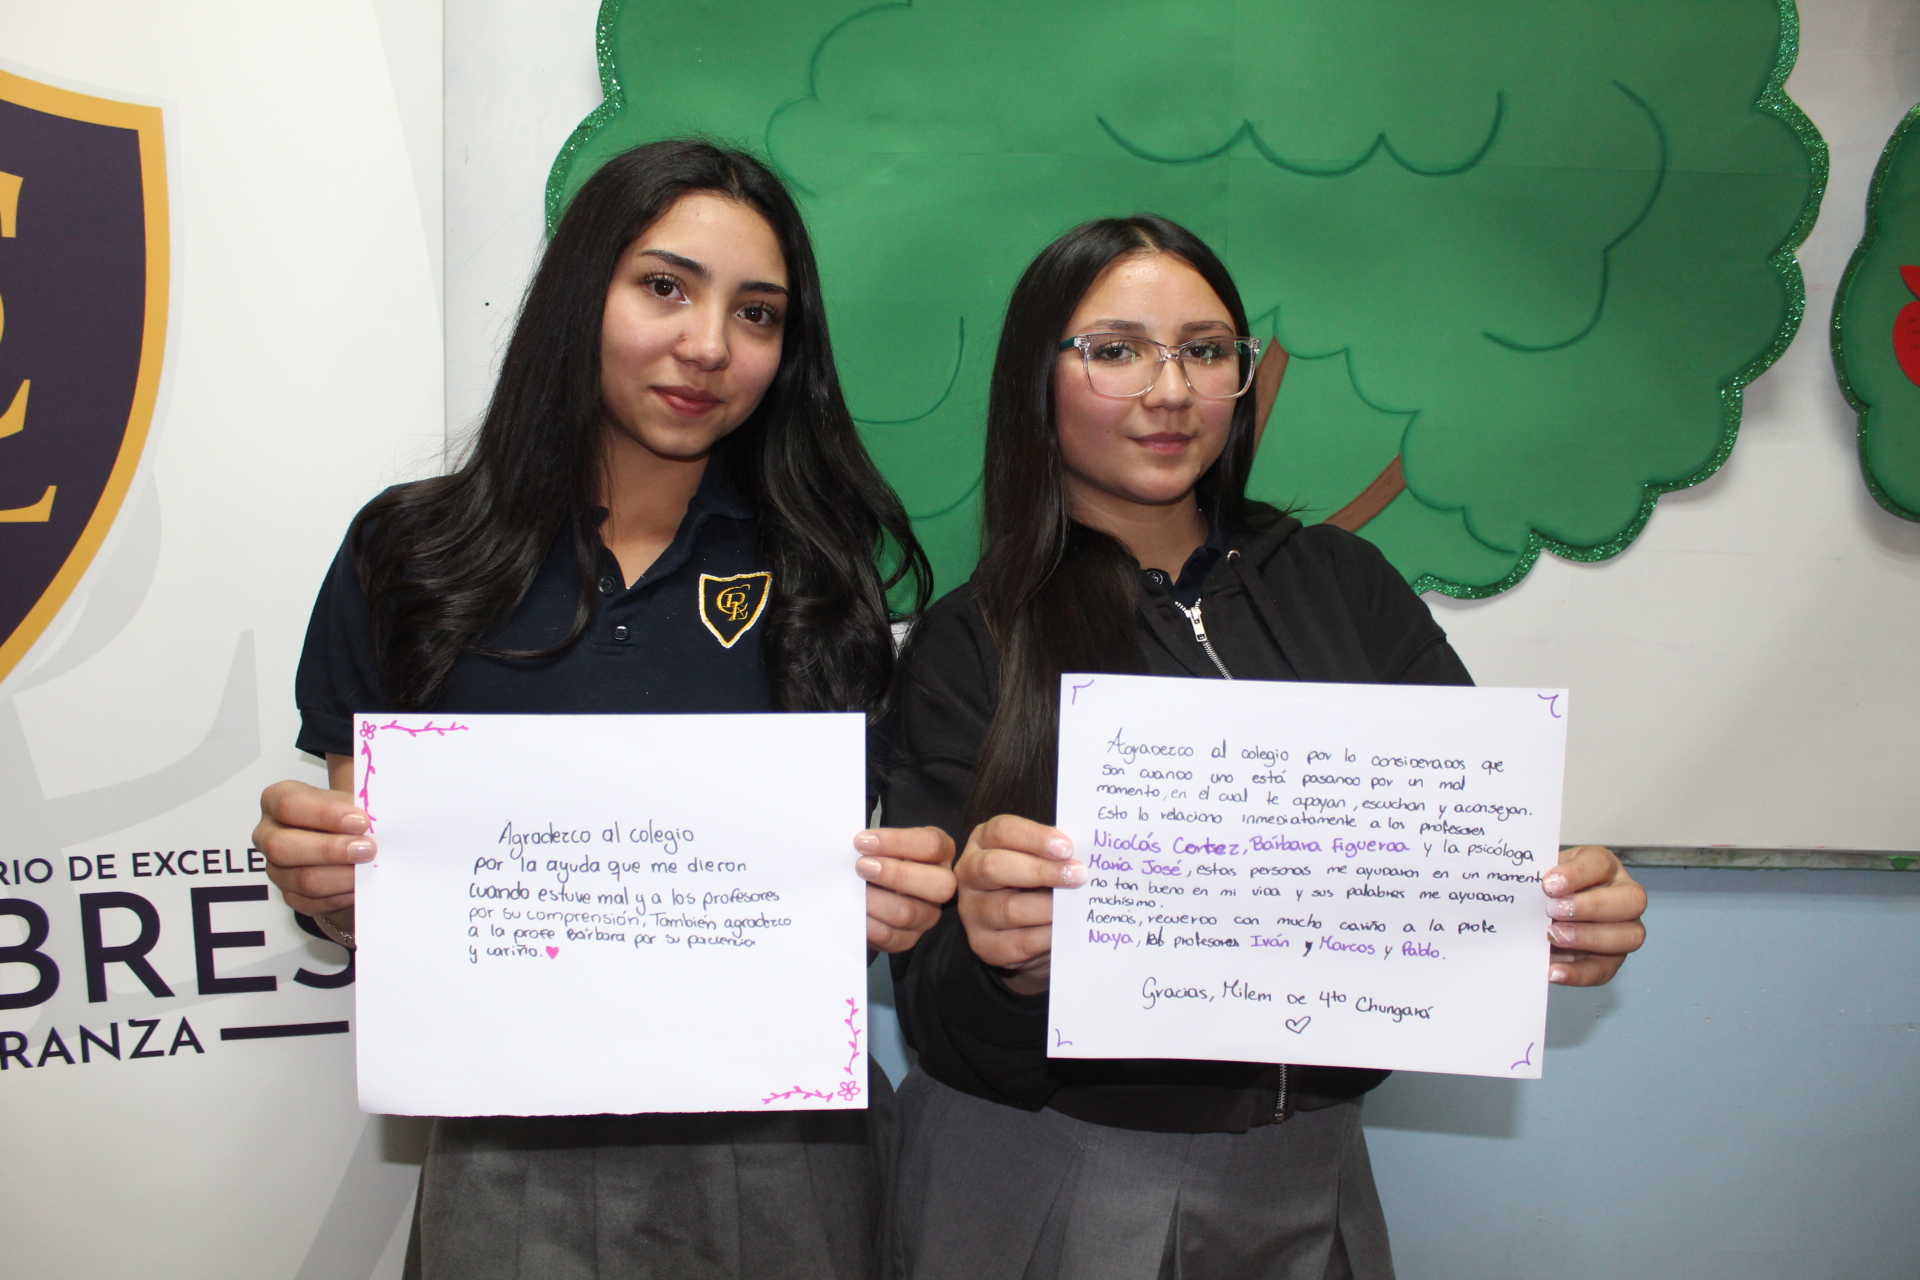 RIO DE EXCELE
BRES
RANZA
Agradezco al colegio
por la ayuda que me dieron
cuando estuve mal y a los profesores
por su comprensión, También agradezco
a la profe Bárbara por su paciencia
y cariño.
Agradezco al colegio por lo considerados que
son cuando uno está pasando por un mal
momento, en el cual te apoyan, escuchan y aconsejan.
Esto lo relaciono inmediatamente a los profesores
Nicolás Cortez, Bárbara Figueroa y la psicóloga
Maria José, estas personas me ayudaron en un momento
no tan bueno en mi vida y sus palabras me ayudaron
muchísimo.
Además, recuerdo con mucho cariño a la profe
Naya, los profesores Iván y Marcos y Pablo.
Gracias, Milem de 4to Chungará